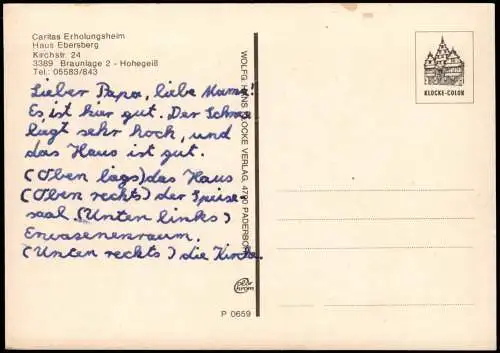 Caritas Erholungsheim
Haus Ebersberg
Kirchstr. 24
3389 Braunlage 2 - Hohegeiß
Tel.: 05583/843
Lieber Papa, liebe Mama!
Es ist hir gut. Der Schnee
lügt sehr hoch, und
das Haus ist gut.
(Oben lags) das Haus
(Oben rechts) der Speise-
saal. (Unten links)
Erwasenenraum.
(Unten rechts) die Kirche.
WOLFG. HANS KLOCKE VERLAG, 4790 PADERBORN
KLOCKE-COLOR
P 0659